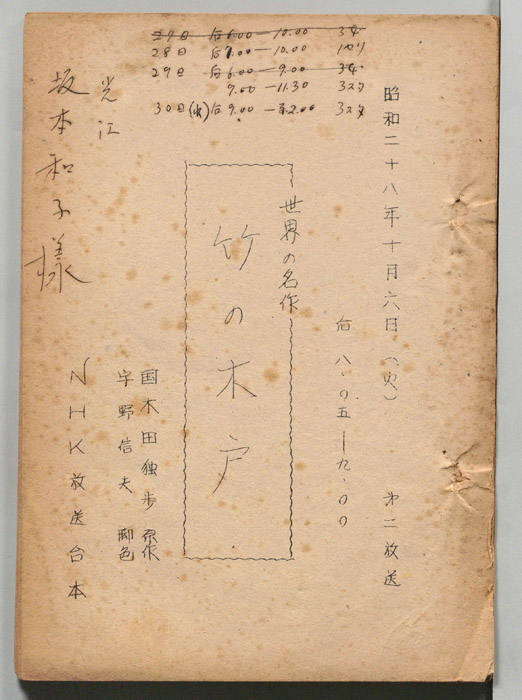 27日 后6.00—10.00 3スタ
28日 后7.00—10.00 1セリ
29日 后6.00—9.00 3スタ
9.00—11.30 3スタ
30日(水)后9.00— 2.00 3スタ
昭和二十八年十月六日(火) 第二放送
后八.〇五—九.〇〇
世界の名作
竹の木戸
国木田独歩 原作
宇野信夫 脚色
光江
坂本和子様
NHK放送台本